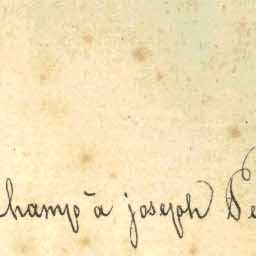 hamp à joseph Pe